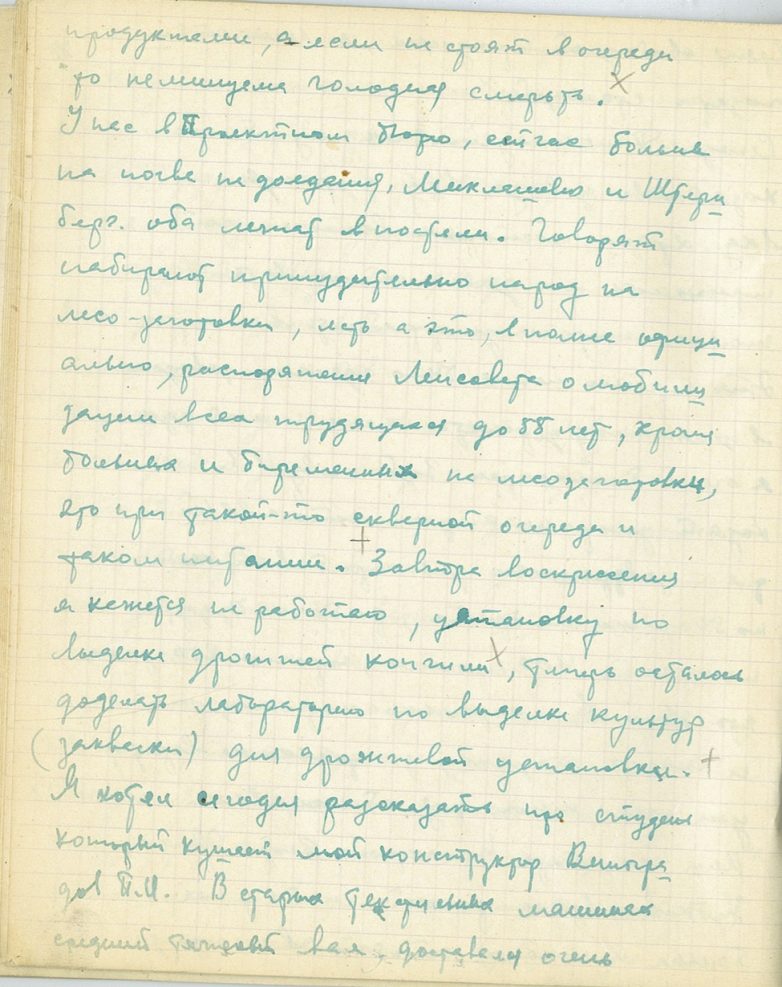 продуктами, а если не стоят в очереди
то неминуема голодная смерть.
У нас в Проектном бюро, сейчас больные
на почве недоедания, Миклашевич и Штерн
берг. оба лежат в постели. Говорят
набирают принудительно народ на
лесо-заготовки, есть а это, вполне офици
ально, распоряжение Ленсовета о мобили
зации всех трудящихся до 55 лет, кроме
больных и беременных на лесозаготовки,
это при такой-то скверной очереди и
таком питании. Завтра воскресения
я кажется не работаю, установку по
выделке дрожжей кончили, теперь осталось
доделать лабораторию по выделке культур
(закваски) для дрожжевой установки.
Я хотел сегодня рассказать про студень
который кушает мой конструктор Виногра
дов П.И. В старых текстильных машинах
средний вал, доставался очень